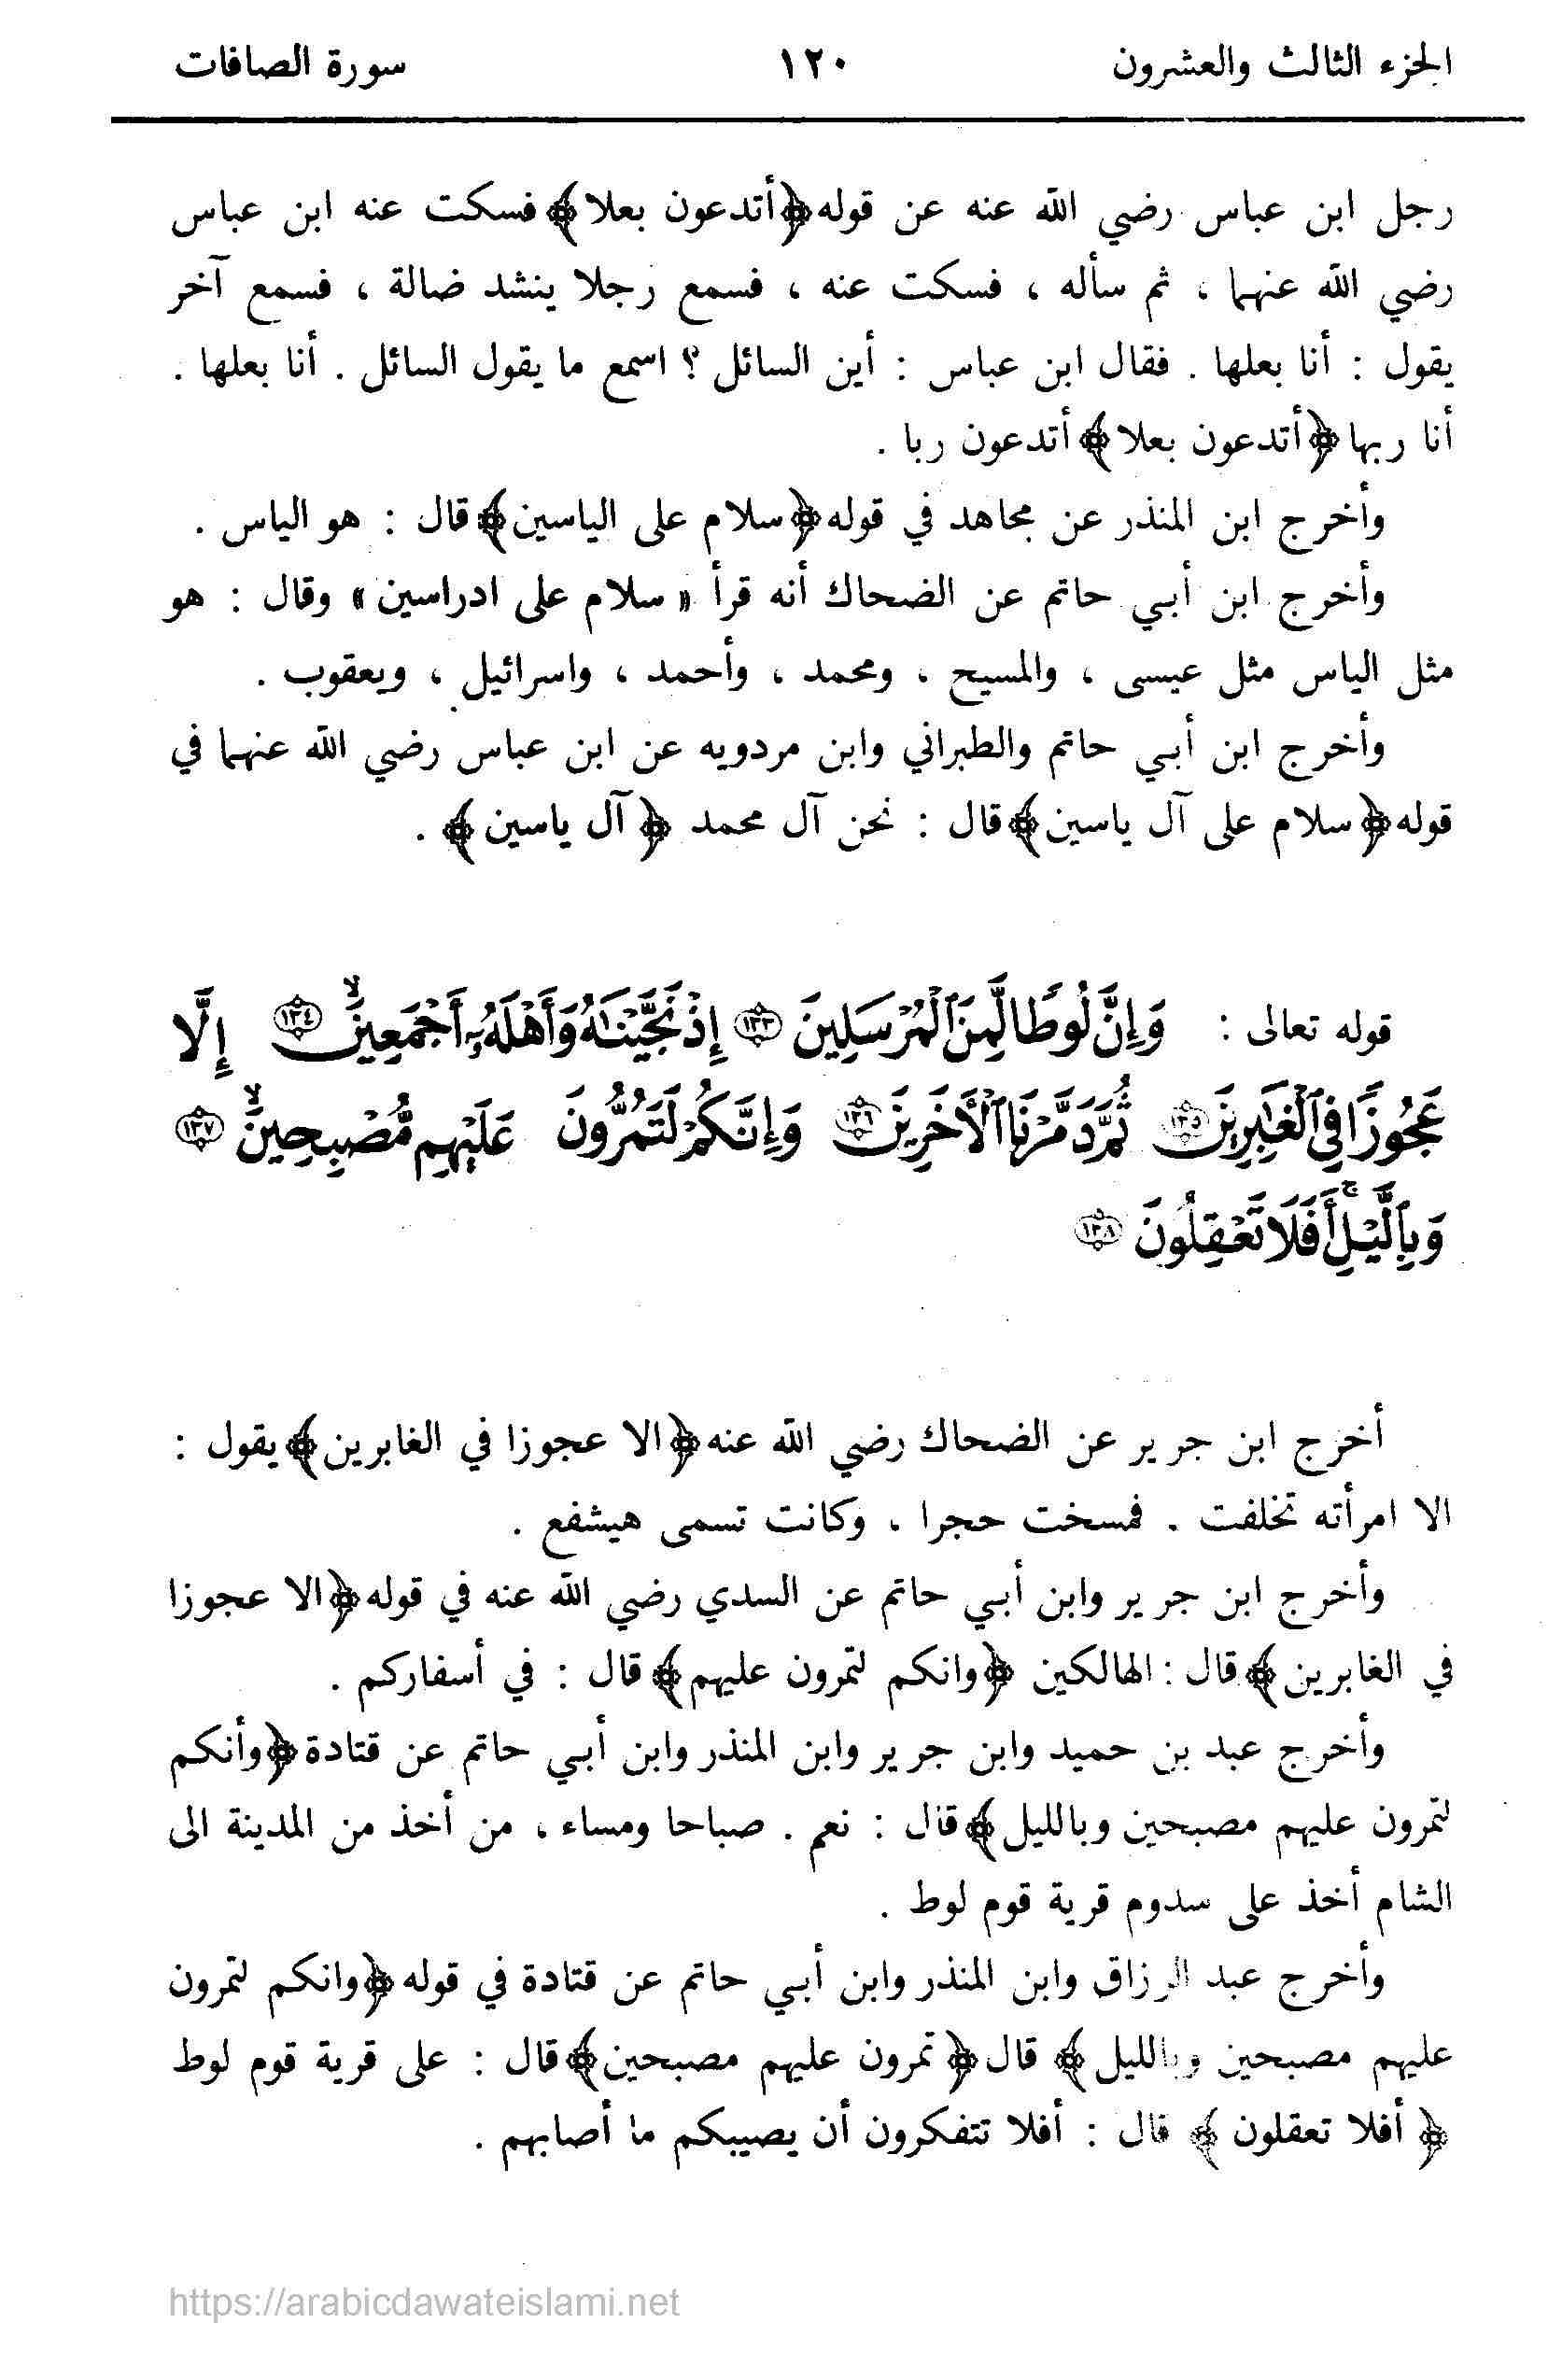 الجزء الثالث والعشرون ١٢٠ سورة الصافات
رجل ابن عباس رضي الله عنه عن قوله ﴿أتدعون بعلا﴾ فسكت عنه ابن عباس
رضي الله عنهما ، ثم سأله ، فسكت عنه ، فسمع رجلا ينشد ضالة ، فسمع آخر
يقول : أنا بعلها . فقال ابن عباس : أين السائل ؟ اسمع ما يقول السائل . أنا بعلها .
أنا ربها ﴿أتدعون بعلا﴾ أتدعون ربا .
وأخرج ابن المنذر عن مجاهد في قوله ﴿سلام على الياسين﴾ قال : هو الياس .
وأخرج ابن أبي حاتم عن الضحاك أنه قرأ « سلام على ادراسين » وقال : هو
مثل الياس مثل عيسى ، والمسيح ، ومحمد ، وأحمد ، واسرائيل ، ويعقوب .
وأخرج ابن أبي حاتم والطبراني وابن مردويه عن ابن عباس رضي الله عنهما في
قوله ﴿سلام على آل ياسين﴾ قال : نحن آل محمد ﴿ آل ياسين ﴾ .
قوله تعالى : وَإِنَّ لُوطًا لَّمِنَ ٱلْمُرْسَلِينَ ١٣٣ إِذْ نَجَّيْنَٰهُ وَأَهْلَهُۥٓ أَجْمَعِينَ ١٣٤ إِلَّا
عَجُوزًا فِى ٱلْغَٰبِرِينَ ١٣٥ ثُمَّ دَمَّرْنَا ٱلْأَخَرِينَ ١٣٦ وَإِنَّكُمْ لَتَمُرُّونَ عَلَيْهِم مُّصْبِحِينَ ١٣٧
وَبِٱلَّيْلِ أَفَلَا تَعْقِلُونَ ١٣٨
أخرج ابن جرير عن الضحاك رضي الله عنه ﴿الا عجوزا في الغابرين﴾ يقول :
الا امرأته تخلفت . فمسخت حجرا ، وكانت تسمى هيشفع .
وأخرج ابن جرير وابن أبي حاتم عن السدي رضي الله عنه في قوله ﴿الا عجوزا
في الغابرين﴾ قال : الهالكين ﴿وانكم لتمرون عليهم﴾ قال : في أسفاركم .
وأخرج عبد بن حميد وابن جرير وابن المنذر وابن أبي حاتم عن قتادة ﴿وأنكم
لتمرون عليهم مصبحين وبالليل﴾ قال : نعم . صباحا ومساء ، من أخذ من المدينة الى
الشام أخذ على سدوم قرية قوم لوط .
وأخرج عبد الرزاق وابن المنذر وابن أبي حاتم عن قتادة في قوله ﴿وانكم لتمرون
عليهم مصبحين وبالليل﴾ قال ﴿تمرون عليهم مصبحين﴾ قال : على قرية قوم لوط
﴿ أفلا تعقلون ﴾ قال : أفلا تتفكرون أن يصيبكم ما أصابهم .
https://arabicdawateislami.net